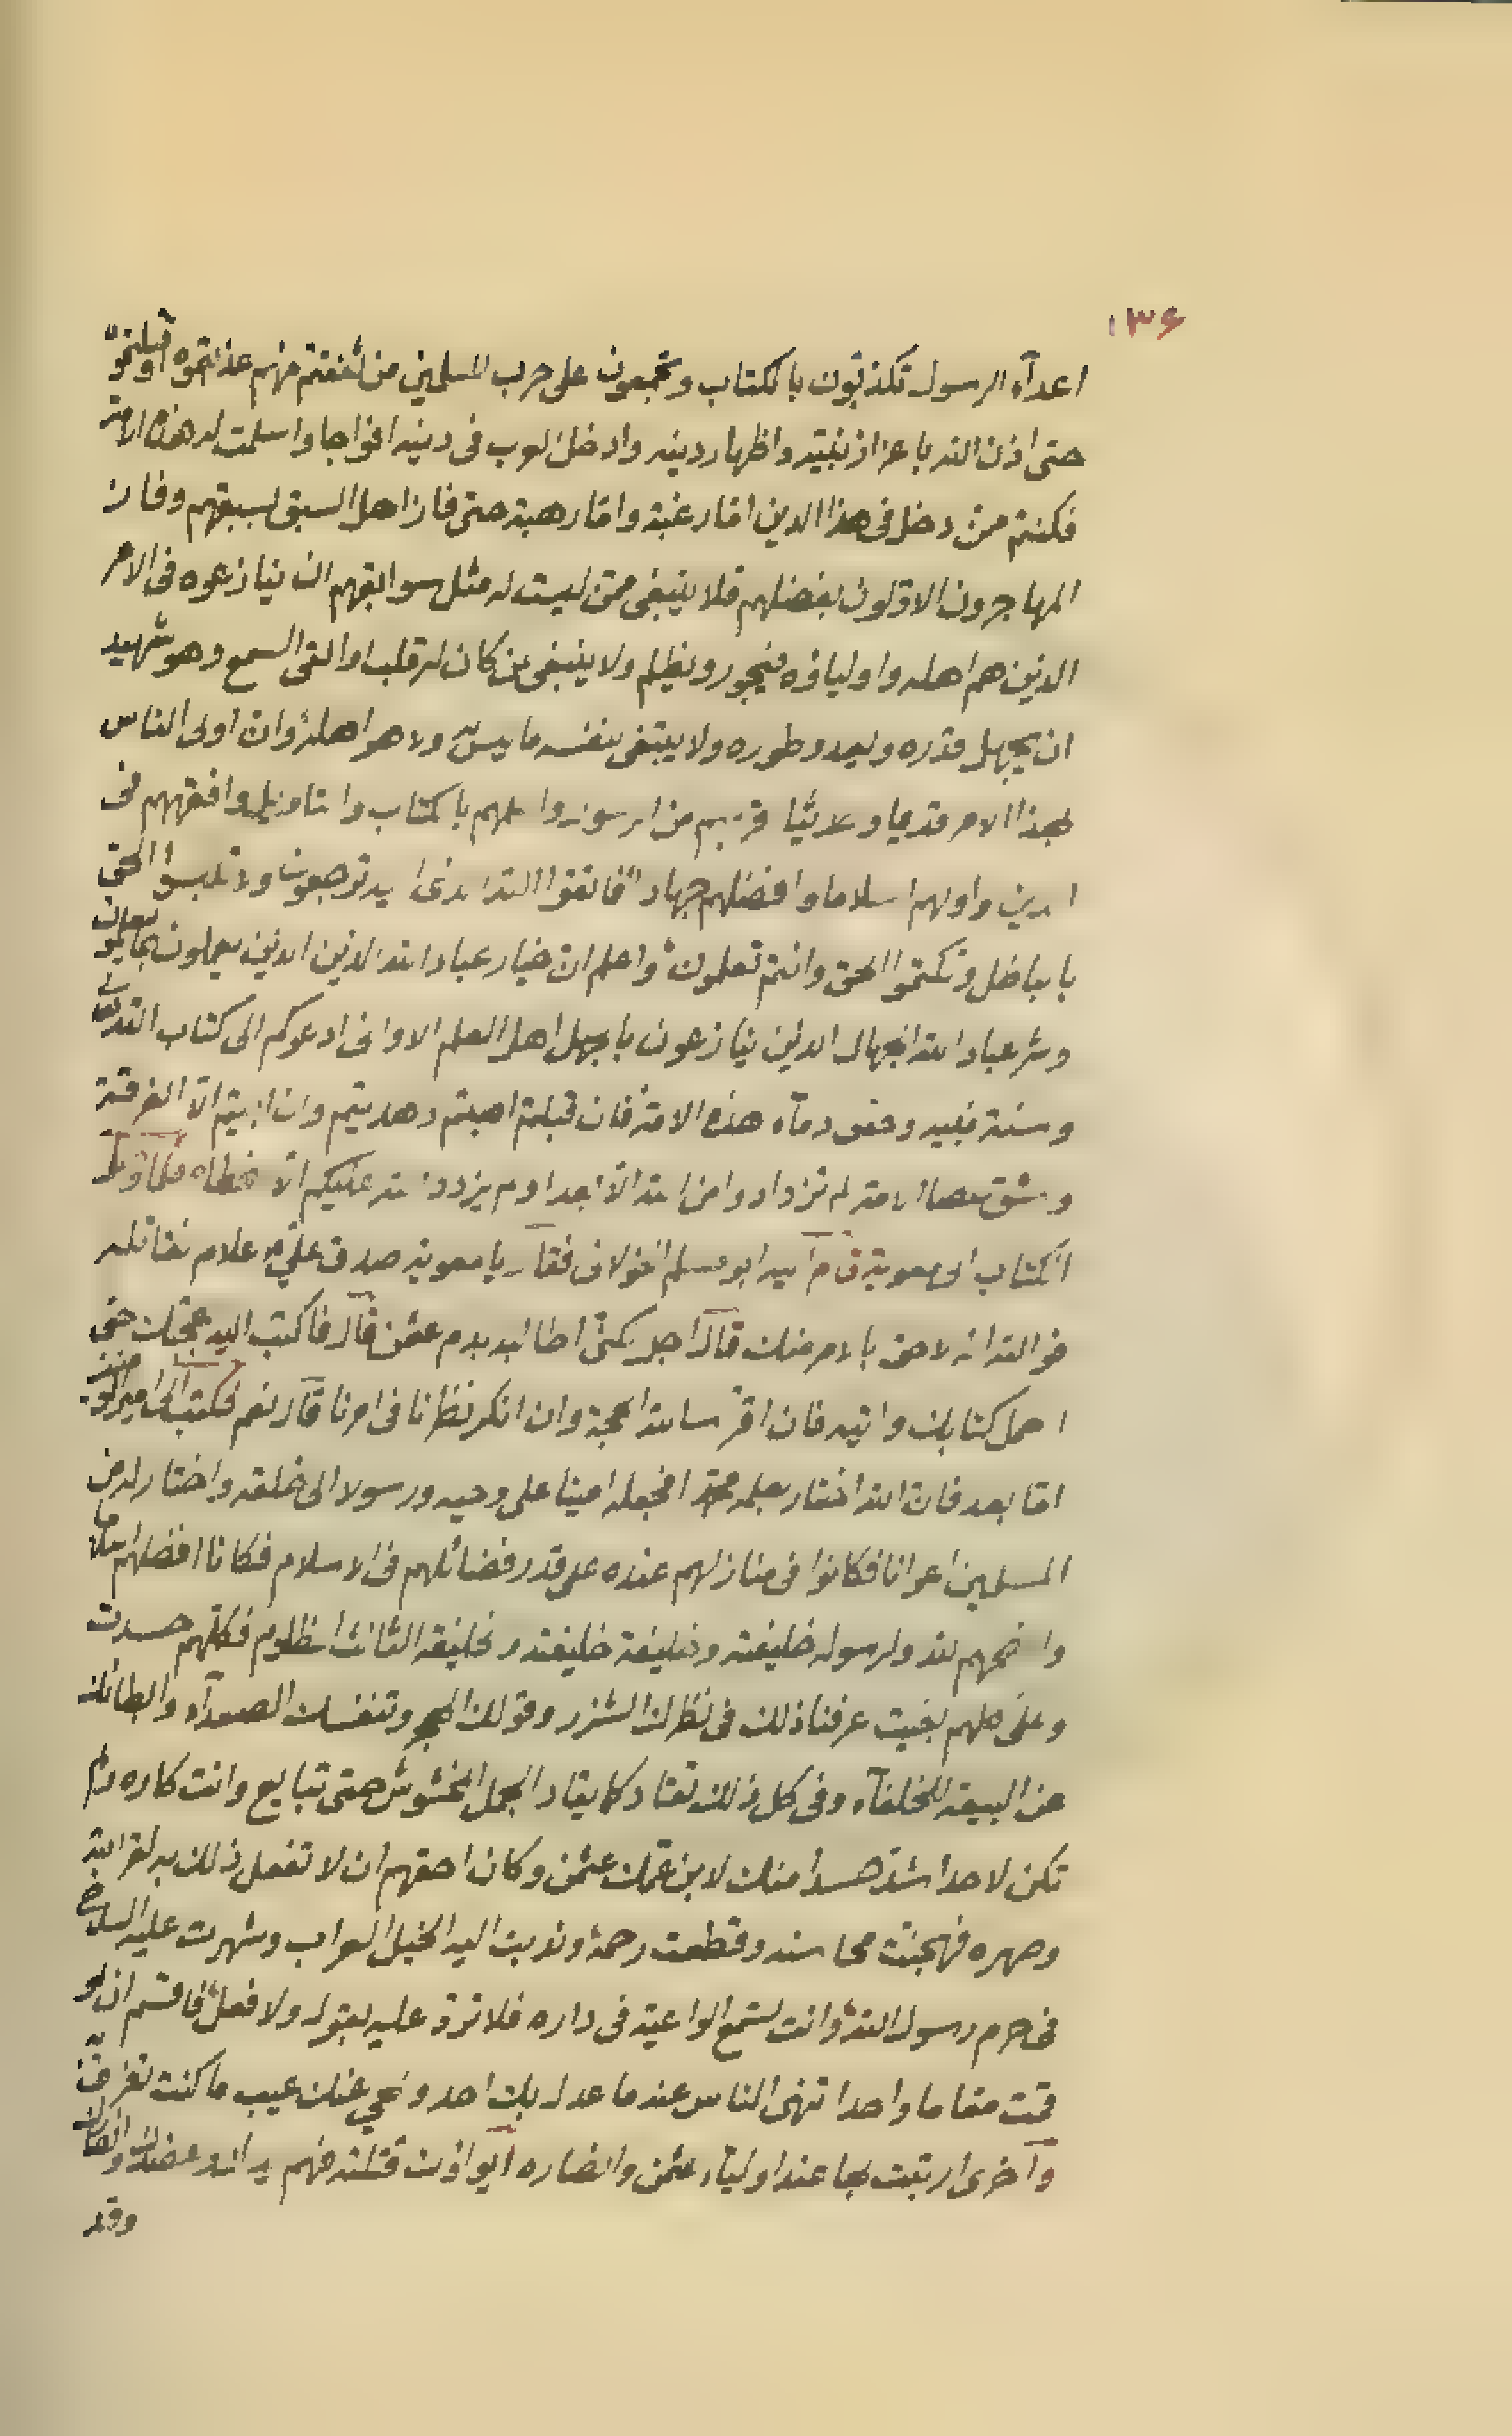 ۱۳۶
اعدآء الرسول تكذبون بالكتاب وتجمعون على حرب المسلمين من ثقفتم منهم عذبتموه او قتلتموه
حتى اذن الله باعزاز نبيّه واظهار دينه وادخل العرب فى دينه افواجا واسلمت له هذه الامّة
فكنتم ممّن دخل فى هذا الدين امّا رغبة وامّا رهبة حتى فاز اهل السبق بسبقهم وفاز
المهاجرون الاوّلون بفضلهم فلا ينبغى ممّن ليست له مثل سوابقهم ان ينازعوه فى الامر
الذين هم اهله واولياؤه فيجور ويظلم ولا ينبغى لمن كان له قلب او القى السمع وهو شهيد
ان يجهل قدره ويعدو طوره ولا يبتغى بنفسه ما ليس له ولا هو اهله وان اولى الناس
بهذا الامر قديما وحديثا اقربهم من الرسول واعلمهم بالكتاب والتاويل وافقههم فى
الدين واولهم اسلاما وافضلهم جهادا فاتقوا الله الذى اليه ترجعون ولا تلبسوا الحق
بالباطل وتكتموا الحق وانتم تعلمون واعلم ان خيار عباد الله الذين الذين يعملون بما يعلمون
وشر عباد الله الجهال الذين ينازعون بالجهل اهل العلم الا وانى ادعوكم الى كتاب الله تعالى
وسنة نبيه وحقن دمآء هذه الامة فان قبلتم اصبتم وهديتم وان ابيتم الّا الفرقة
وشق عصا الامة لم تزدادوا من الله الّا بعدا ولم يزدد الله عليكم الّا سخطا فلما وصل
الكتاب الى معوية قام اليه ابو مسلم الخولانى فقال يا معوية صدق علىّ علام نقاتله
فو الله انه لاحق بالامر منك قال اجل لكنّى اطالبه بدم عثمن قال فاكتب اليه بحجتك حتى
احمل كتابك واتيه فان اقرّ سالنا الحجة وان انكر نظرنا فى امرنا قال نعم فكتب الى امير المؤمنين
امّا بعد فان الله اختار بعلمه محمّدا فجعله امينا على وحيه ورسولا الى خلقه واختار له من
المسلمين اعوانا فكانوا فى منازلهم عنده على قدر فضائلهم فى الاسلام فكانا افضلهم اسلاما
وانصحهم لله ولرسوله خليفته وخليفة خليفته والخليفة الثالث المظلوم فكلّهم حسدت
وعلى كلهم بغيت عرفنا ذلك فى نظرك الشزر وقولك الهجر وتنفسك الصعدآء وابطائك
عن البيعة للخلفآء وفى كل ذلك تقاد كما يقاد الجمل المخشوش حتى تبايع وانت كاره ولم
تكن لاحد اشدّ حسدا منك لابن عمّك عثمن وكان احقهم ان لا تفعل ذلك به لقرابته
وصهره فهجنت محاسنه وقطعت رحمه وندبت اليه الخيل العراب وشهرت عليه السلاح
فى حرم رسول الله وانت تسمع الواعية فى داره فلا تردّ عليه بقول ولا فعل فاقسم ان لو
قمت مقاما واحدا تنهى الناس عنه ما عدل بك احد ومحى عنك عيب ما كنت تعرف به
وآخرى ارتبت بها عند اوليآء عثمن وانصاره ايواؤك قتلته فهم يدك وعضدك وانصارك
وقد